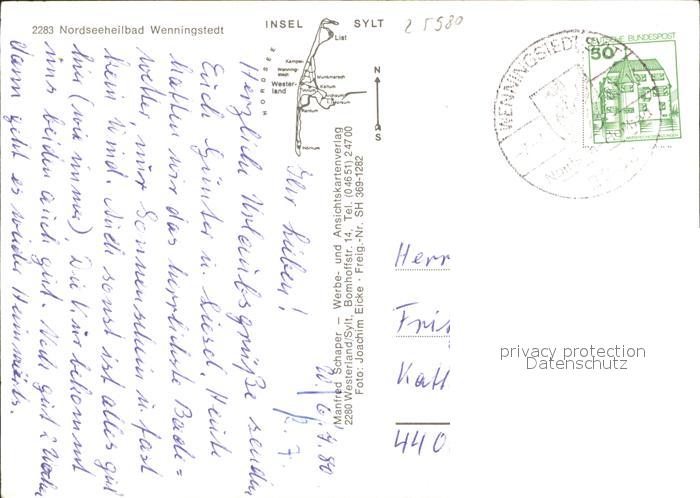 2283 Nordseeheilbad Wenningstedt
INSEL SYLT
2 5980
List
Kampen
Wenning-
stedt
Munkmarsch
Wester-
land
Keitum
Rantum
Hörnum
NORDSEE
N
S
Manfred Schaper — Werbe- und Ansichtskartenverlag
2280 Westerland/Sylt, Bomhoffstr. 14, Tel. (04651) 24700
Foto: Joachim Eicke · Freig.-Nr. SH 369-1282
W., 6.7.80
Ihr Lieben!
Herzliche Urlaubsgrüße senden
Euch Günter u. Liesel. Heute
hatten wir das herrlichste Bade=
wetter, nur Sonnenschein u. fast
kein Wind. Auch sonst ist alles gut
hier (wie immer). Die Kur bekommt
uns beiden auch gut. Noch gut 2 Wochen
dann geht es wieder Heimwärts.
DEUTSCHE BUNDESPOST
50
WENNINGSTEDT
Herr
Fri
Katt
440
privacy protection
Datenschutz